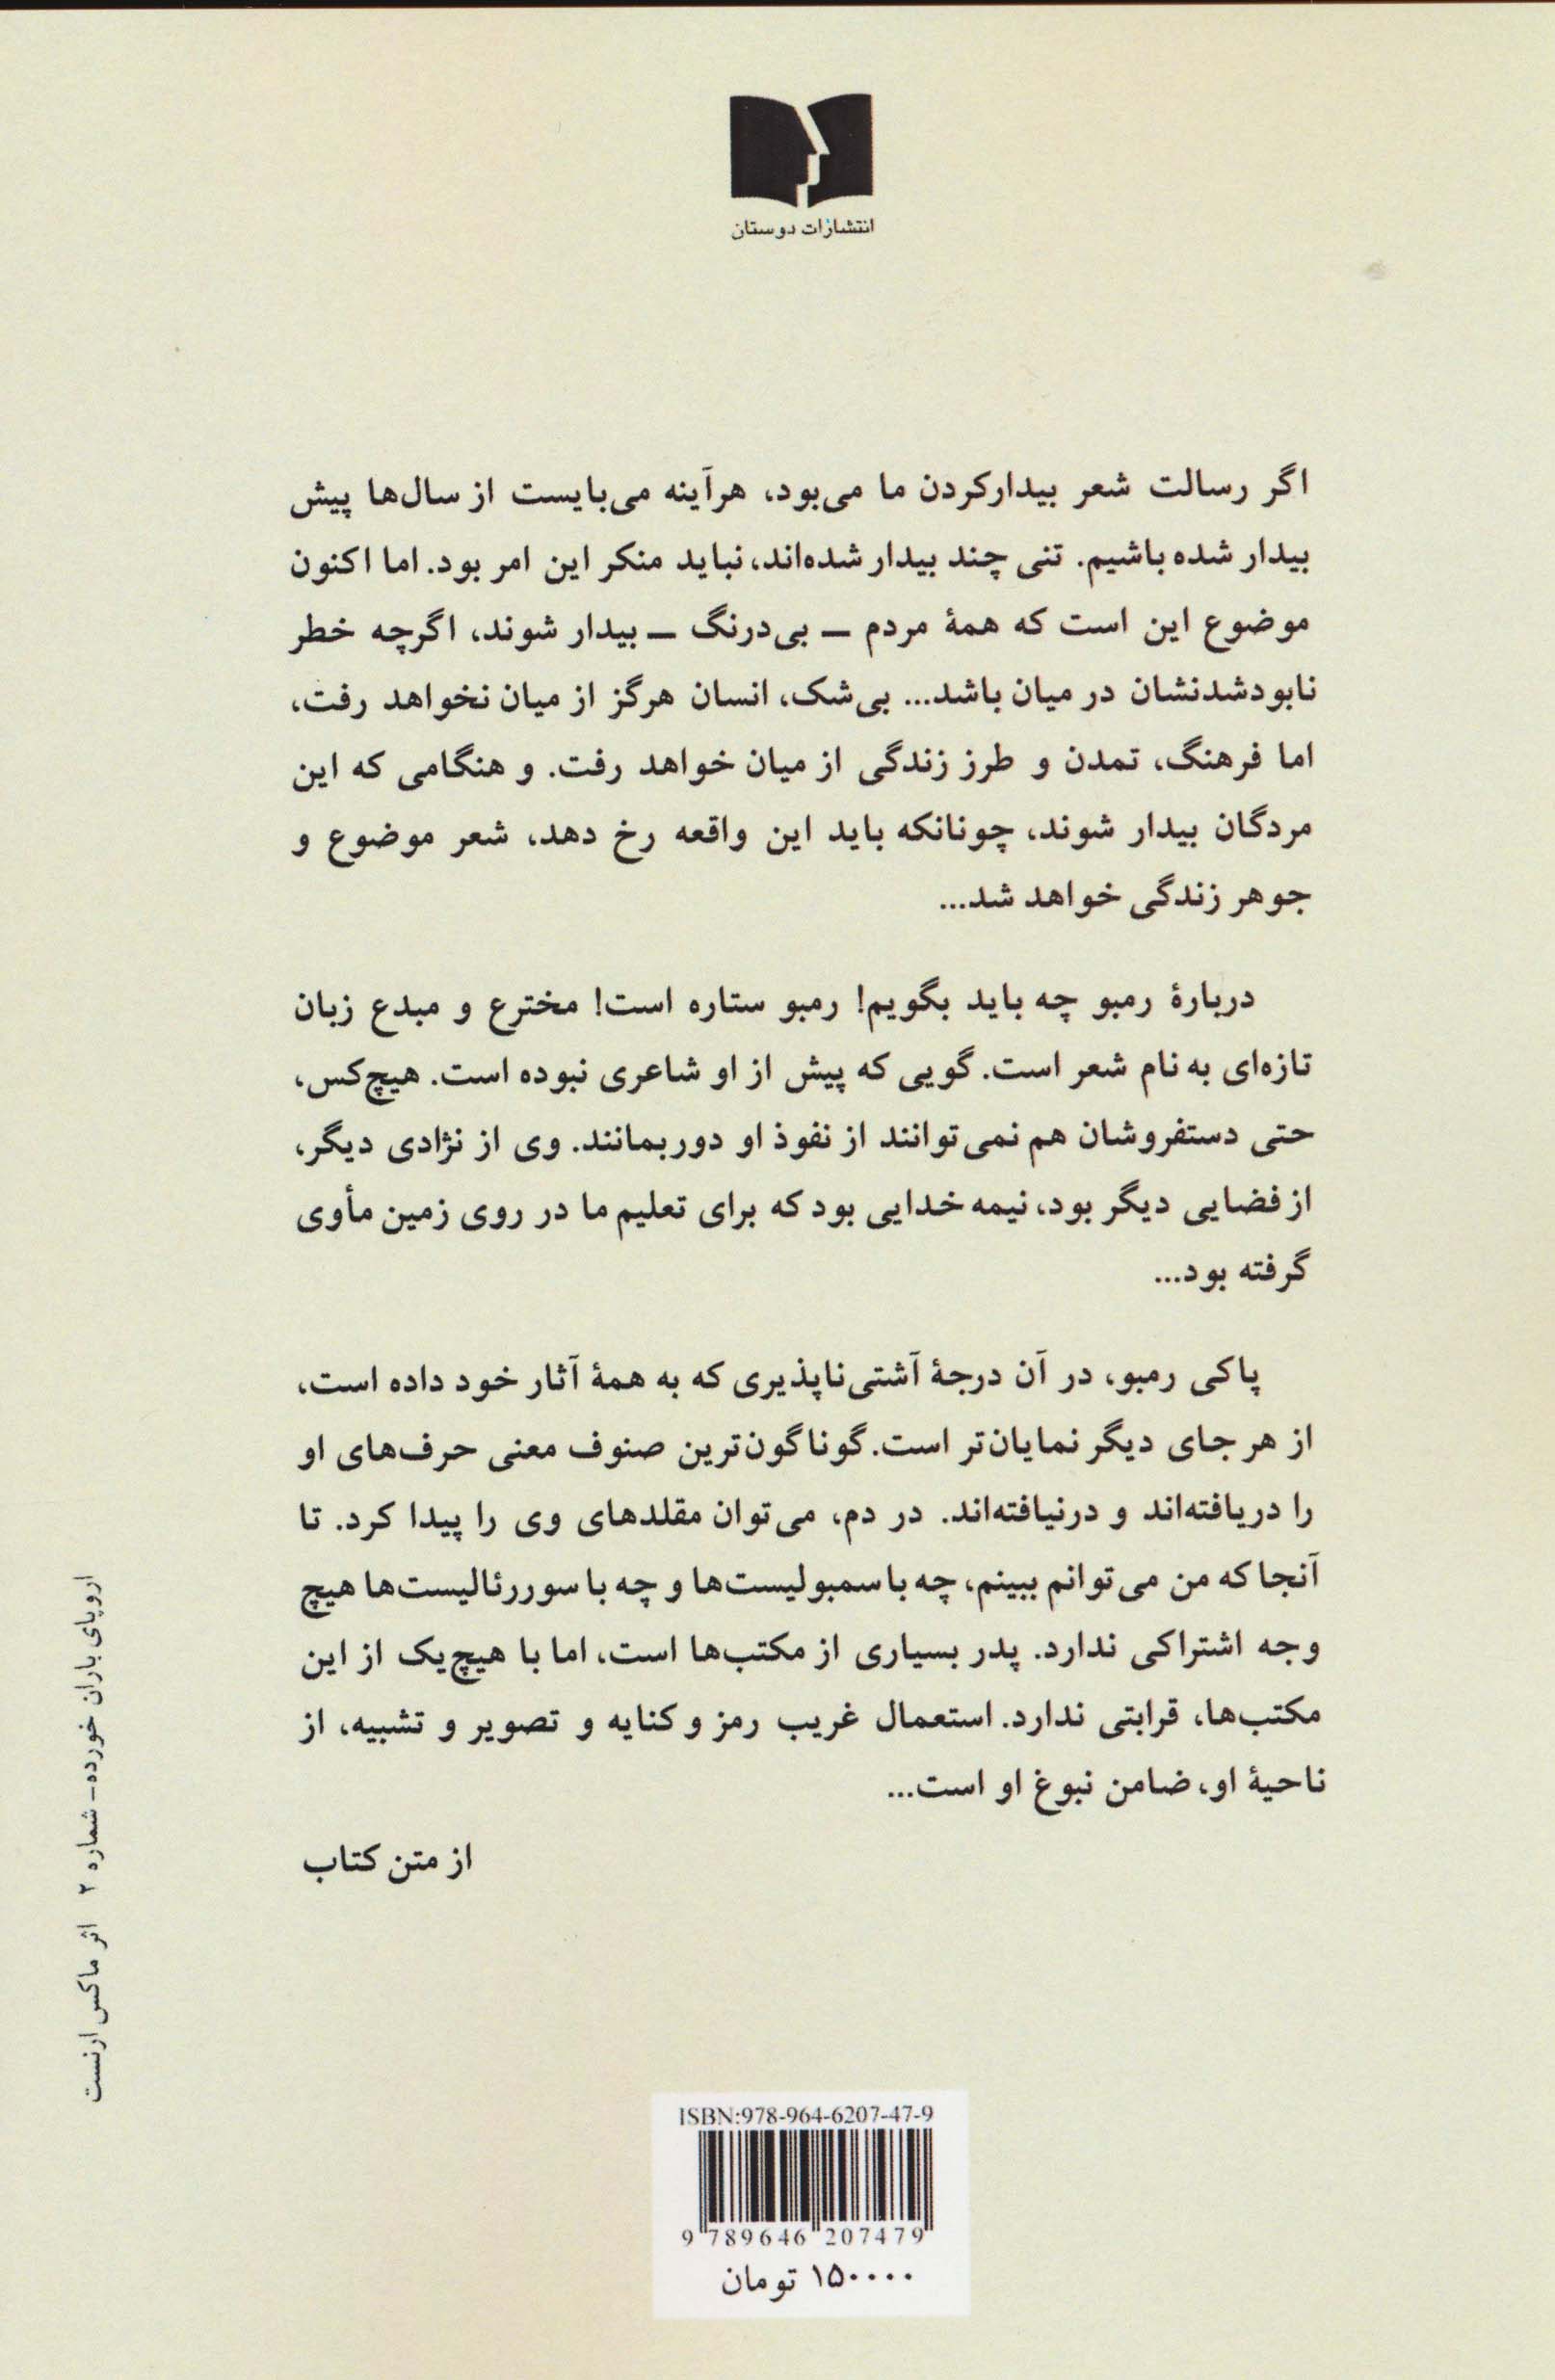 انتشارات دوستان
اگر رسالت شعر بیدارکردن ما می‌بود، هرآینه می‌بایست از سال‌ها پیش
بیدار شده باشیم. تنی چند بیدار شده‌اند، نباید منکر این امر بود. اما اکنون
موضوع این است که همهٔ مردم ـ بی‌درنگ ـ بیدار شوند، اگرچه خطر
نابودشدنشان در میان باشد... بی‌شک، انسان هرگز از میان نخواهد رفت،
اما فرهنگ، تمدن و طرز زندگی از میان خواهد رفت. و هنگامی که این
مردگان بیدار شوند، چونانکه باید این واقعه رخ دهد، شعر موضوع و
جوهر زندگی خواهد شد...
دربارهٔ رمبو چه باید بگویم! رمبو ستاره است! مخترع و مبدع زبان
تازه‌ای به نام شعر است. گویی که پیش از او شاعری نبوده است. هیچ‌کس،
حتی دستفروشان هم نمی‌توانند از نفوذ او دور بمانند. وی از نژادی دیگر،
از فضایی دیگر بود، نیمه خدایی بود که برای تعلیم ما در روی زمین مأوی
گرفته بود...
پاکی رمبو، در آن درجهٔ آشتی‌ناپذیری که به همهٔ آثار خود داده است،
از هر جای دیگر نمایان‌تر است. گوناگون‌ترین صنوف معنی حرف‌های او
را دریافته‌اند و درنیافته‌اند. در دم، می‌توان مقلدهای وی را پیدا کرد. تا
آنجا که من می‌توانم ببینم، چه با سمبولیست‌ها و چه با سوررئالیست‌ها هیچ
وجه اشتراکی ندارد. پدر بسیاری از مکتب‌ها است، اما با هیچ‌یک از این
مکتب‌ها، قرابتی ندارد. استعمال غریب رمز و کنایه و تصویر و تشبیه، از
ناحیهٔ او، ضامن نبوغ او است...
از متن کتاب
اروپای باران خورده - شماره ۲ اثر ماکس ارنست
ISBN:978-964-6207-47-9
9 789646 207479
۱۵۰۰۰۰ تومان